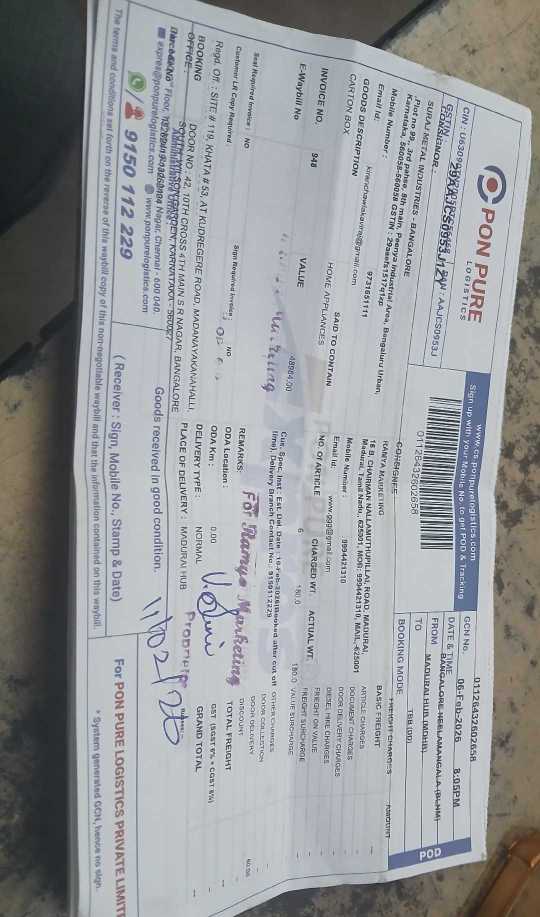 PON PURE
LOGISTICS
www.cs.ponpurelogistics.com
Sign up with your Mobile No. to get POD & Tracking
01126432602658
GCN No. 01126432602658
DATE & TIME 06-Feb-2026 8:05PM
FROM BANGALORE NEELAMANGALA (BLNM)
TO MADURAI HUB (MDHB)
BOOKING MODE TBB (00)
POD
CONSIGNOR :
SURAJ METAL INDUSTRIES - BANGALORE
Plot no 99,, 3rd pahse, 8th main, Peenya Industrial Area, Bengaluru Urban,
Karnataka, 560058-560058
Mobile Number : 9731651111
Email Id.
GOODS DESCRIPTION
CARTON BOX
SAID TO CONTAIN
HOME APPLIANCES
INVOICE NO. 948
VALUE 48964.00
E-Waybill No
CONSIGNEE
RAMYA MARKETING
16 B, CHAIRMAN NALLAMUTHUPILLAI, ROAD, MADURAI,
Madurai, Tamil Nadu, 625001, MOB: 9994421310, MAIL:-625001
Mobile Number : 9994421310
Email Id. www.ggg@gmail.com
NO. OF ARTICLE 6
CHARGED WT. 180.0
ACTUAL WT. 180.0
Cus. Spec. Inst : Est. Del. Date : 10-Feb-2026(Booked after cut off
time), Delivery Branch Contact No : 9150112229
REMARKS:
For Ramya Marketing
Proprietor
FREIGHT CHARGES AMOUNT
BASIC FREIGHT --
ARTICLE CHARGES --
DOCUMENT CHARGES --
DOOR DELIVERY CHARGES --
DIESEL HIKE CHARGES --
FREIGHT ON VALUE --
FREIGHT SURCHARGE --
VALUE SURCHARGE --
OTHER CHARGES --
DOOR COLLECTION --
DOOR DELIVERY --
DISCOUNT
TOTAL FREIGHT
GRAND TOTAL --
Seal Required Invoice : NO
Sign Required Invoice : NO
Customer LR Copy Required :
ODA Location :
ODA Km : 0.00
DELIVERY TYPE : NORMAL
PLACE OF DELIVERY : MADURAI HUB
Regd. Off. : SITE # 119, KHATA # 53, AT KUDREGERE ROAD, MADANAYAKANAHALLI,
BOOKING
OFFICE :
DOOR NO : 42, 10TH CROSS 4TH MAIN S R NAGAR, BANGALORE
Nagar, Chennai - 600 040.
www.ponpurelogistics.com
9150 112 229
Goods received in good condition.
11/02/26
( Receiver : Sign, Mobile No., Stamp & Date)
For PON PURE LOGISTICS PRIVATE LIMIT
* System generated GCN, hence no sign.
The terms and conditions set forth on the reverse of this waybill copy of this non-negotiable waybill and that the information contained on this waybill